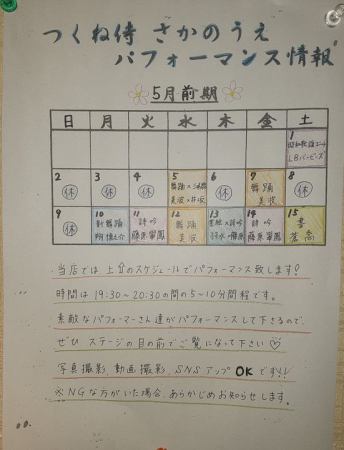 つくね侍 さかのうえ
パフォーマンス情報
5月前期
日 月 火 水 木 金 土
1
LBバービーズ
2 3 4 5 6 7 8
休 休 休 舞踊× 休 舞踊 休
美波× 美波
9 10 11 12 13 14 15
休 新舞踊 詩吟 舞踊 詩吟 書
翔 藤原 美波 藤原 藤原 蒼喬
・当店では上記のスケジュールでパフォーマンス致します!
時間は19:30～20:30の間の5～10分間程です。
素敵なパフォーマーさん達がパフォーマンスして下さるので、
ぜひ ステージの目の前でご覧になって下さい♡
写真撮影、動画撮影、SNSアップOKです!!
※NGな方がいた場合、あらかじめお知らせします。